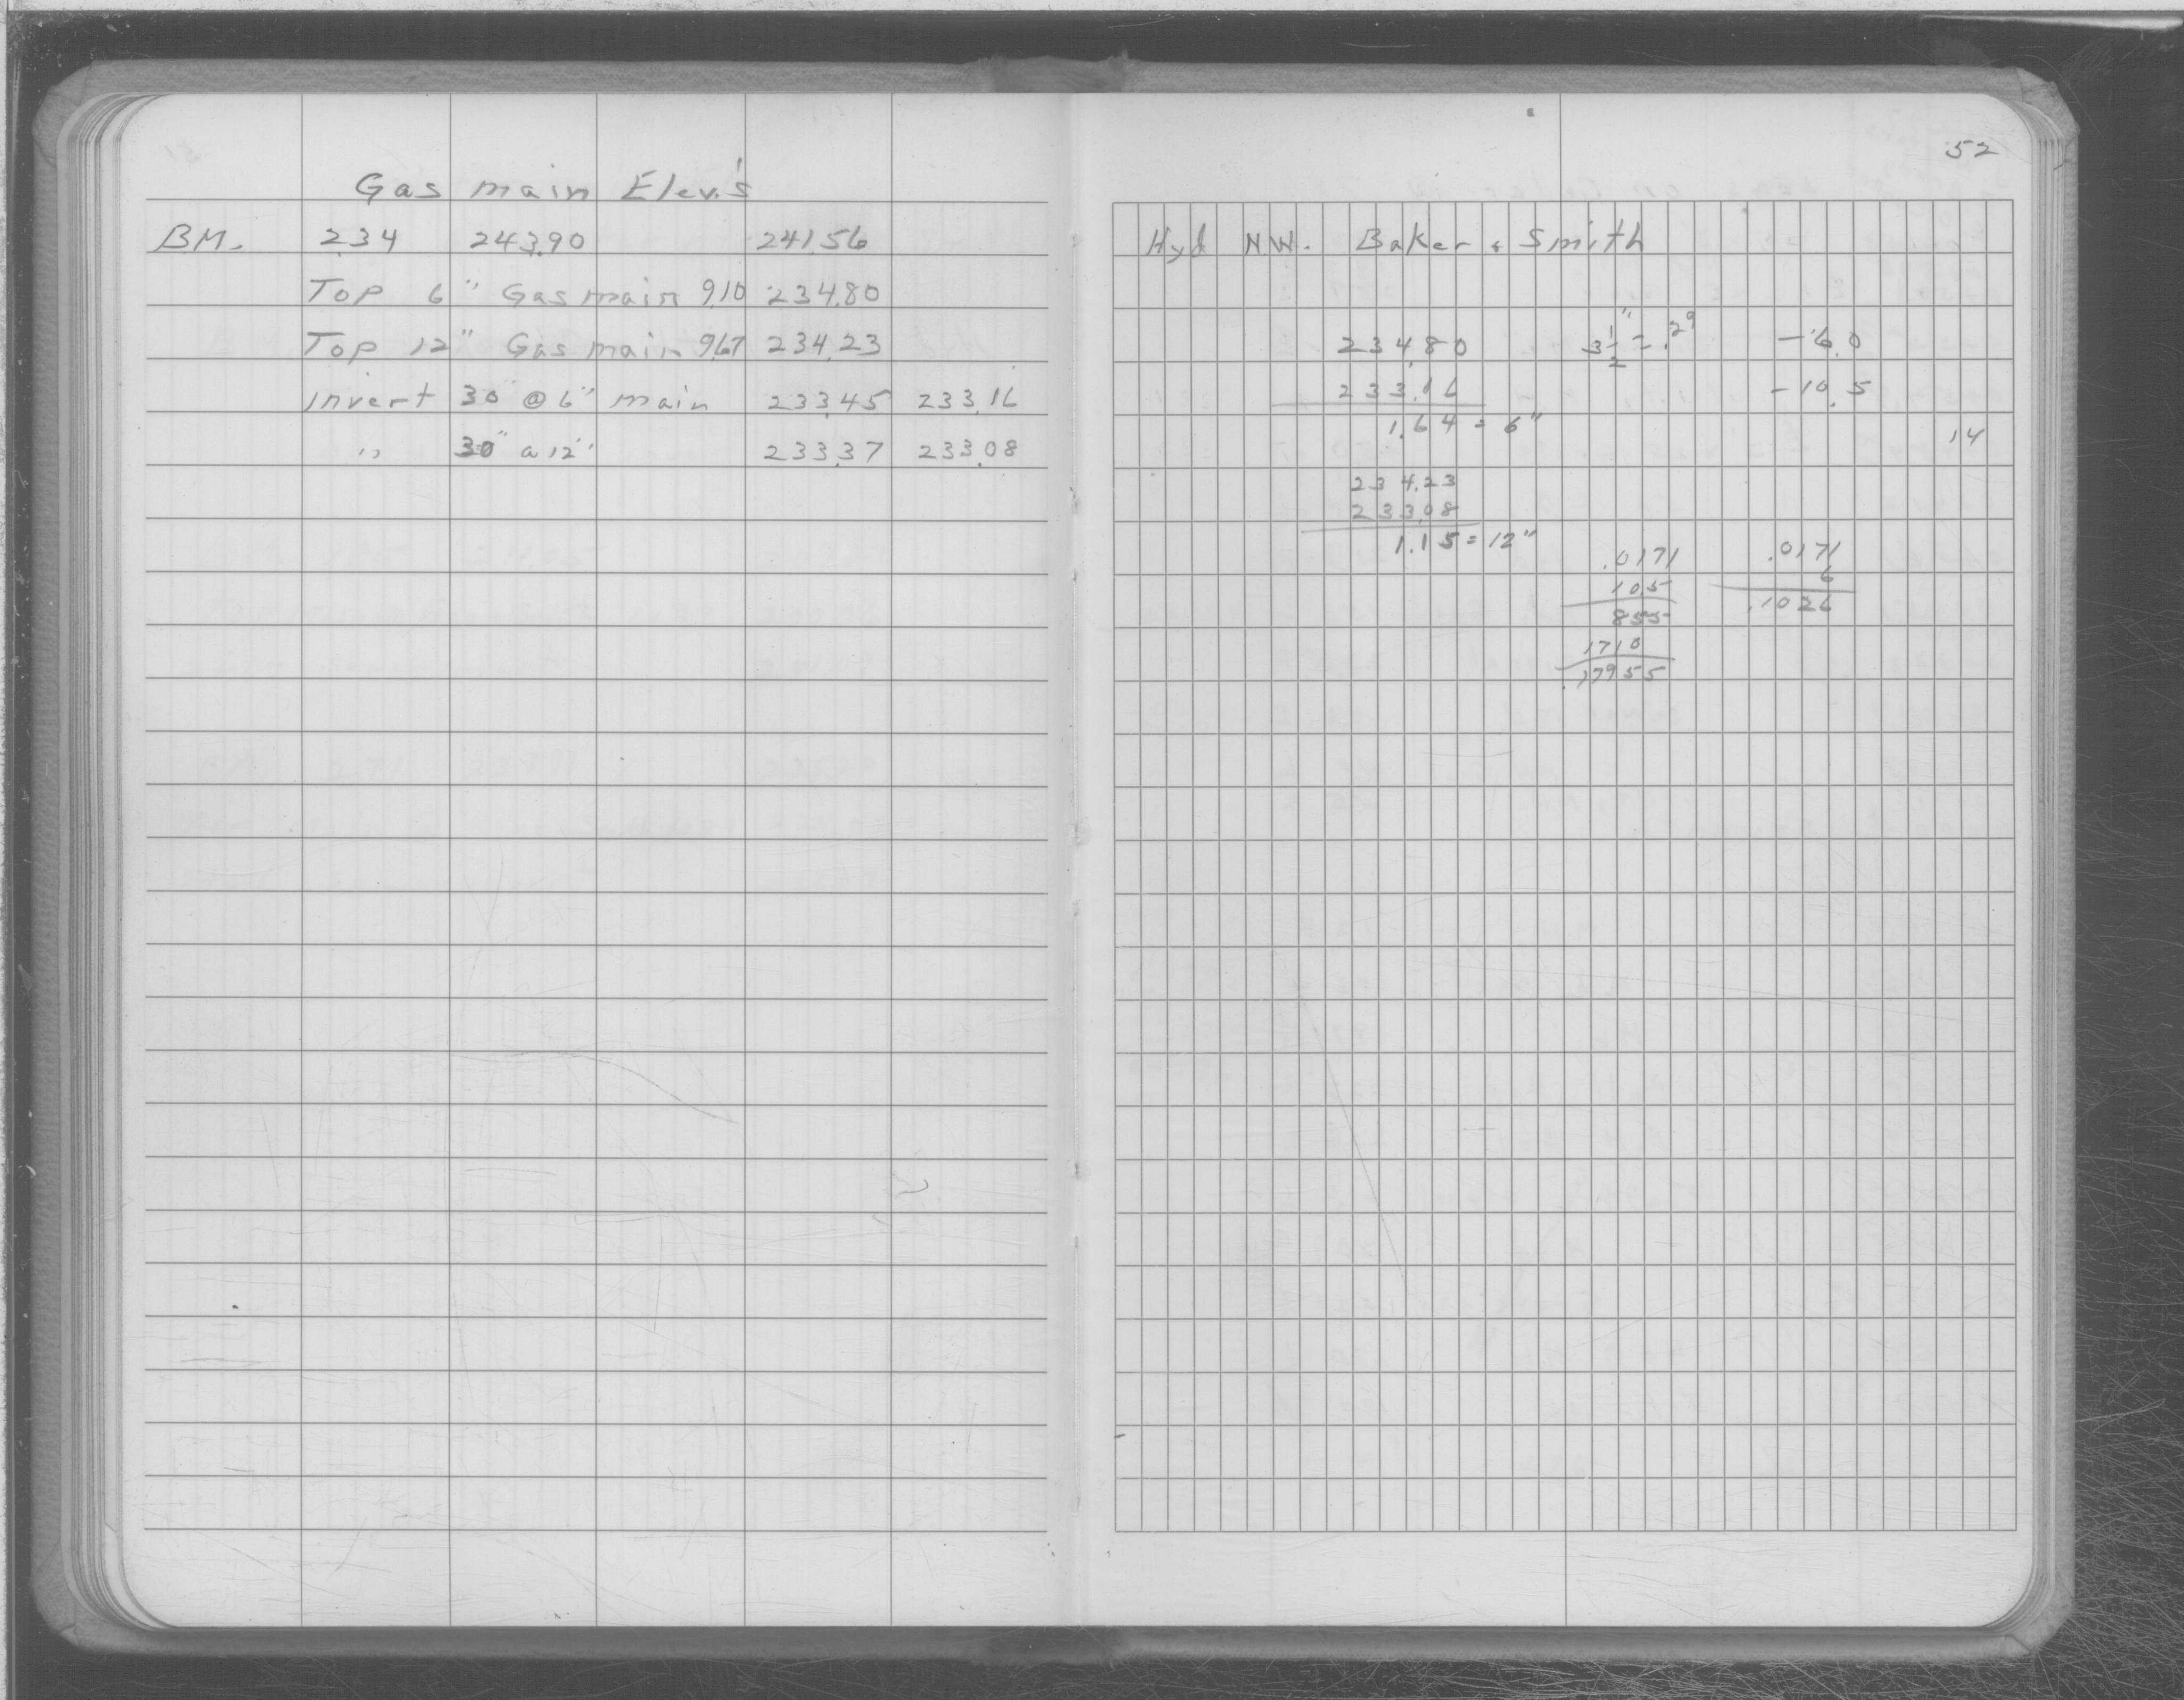 Gas main Elev.'s
BM. 2.34 243.90 241.56
Top 6" Gas main 9.10 234.80
Top 12" Gas main 9.67 234.23
Invert 30" @ 6" main 233.45 233.16
" 30" @ 12" 233.37 233.08
52
Hyd N.W. Baker & Smith
234.80 3 1/2" = .29 -6.0
233.16 -10.5
1.64 = 6"
14
234.23
233.08
1.15 = 12"
.0171 .0171
105 6
855 .1026
1710
.17955